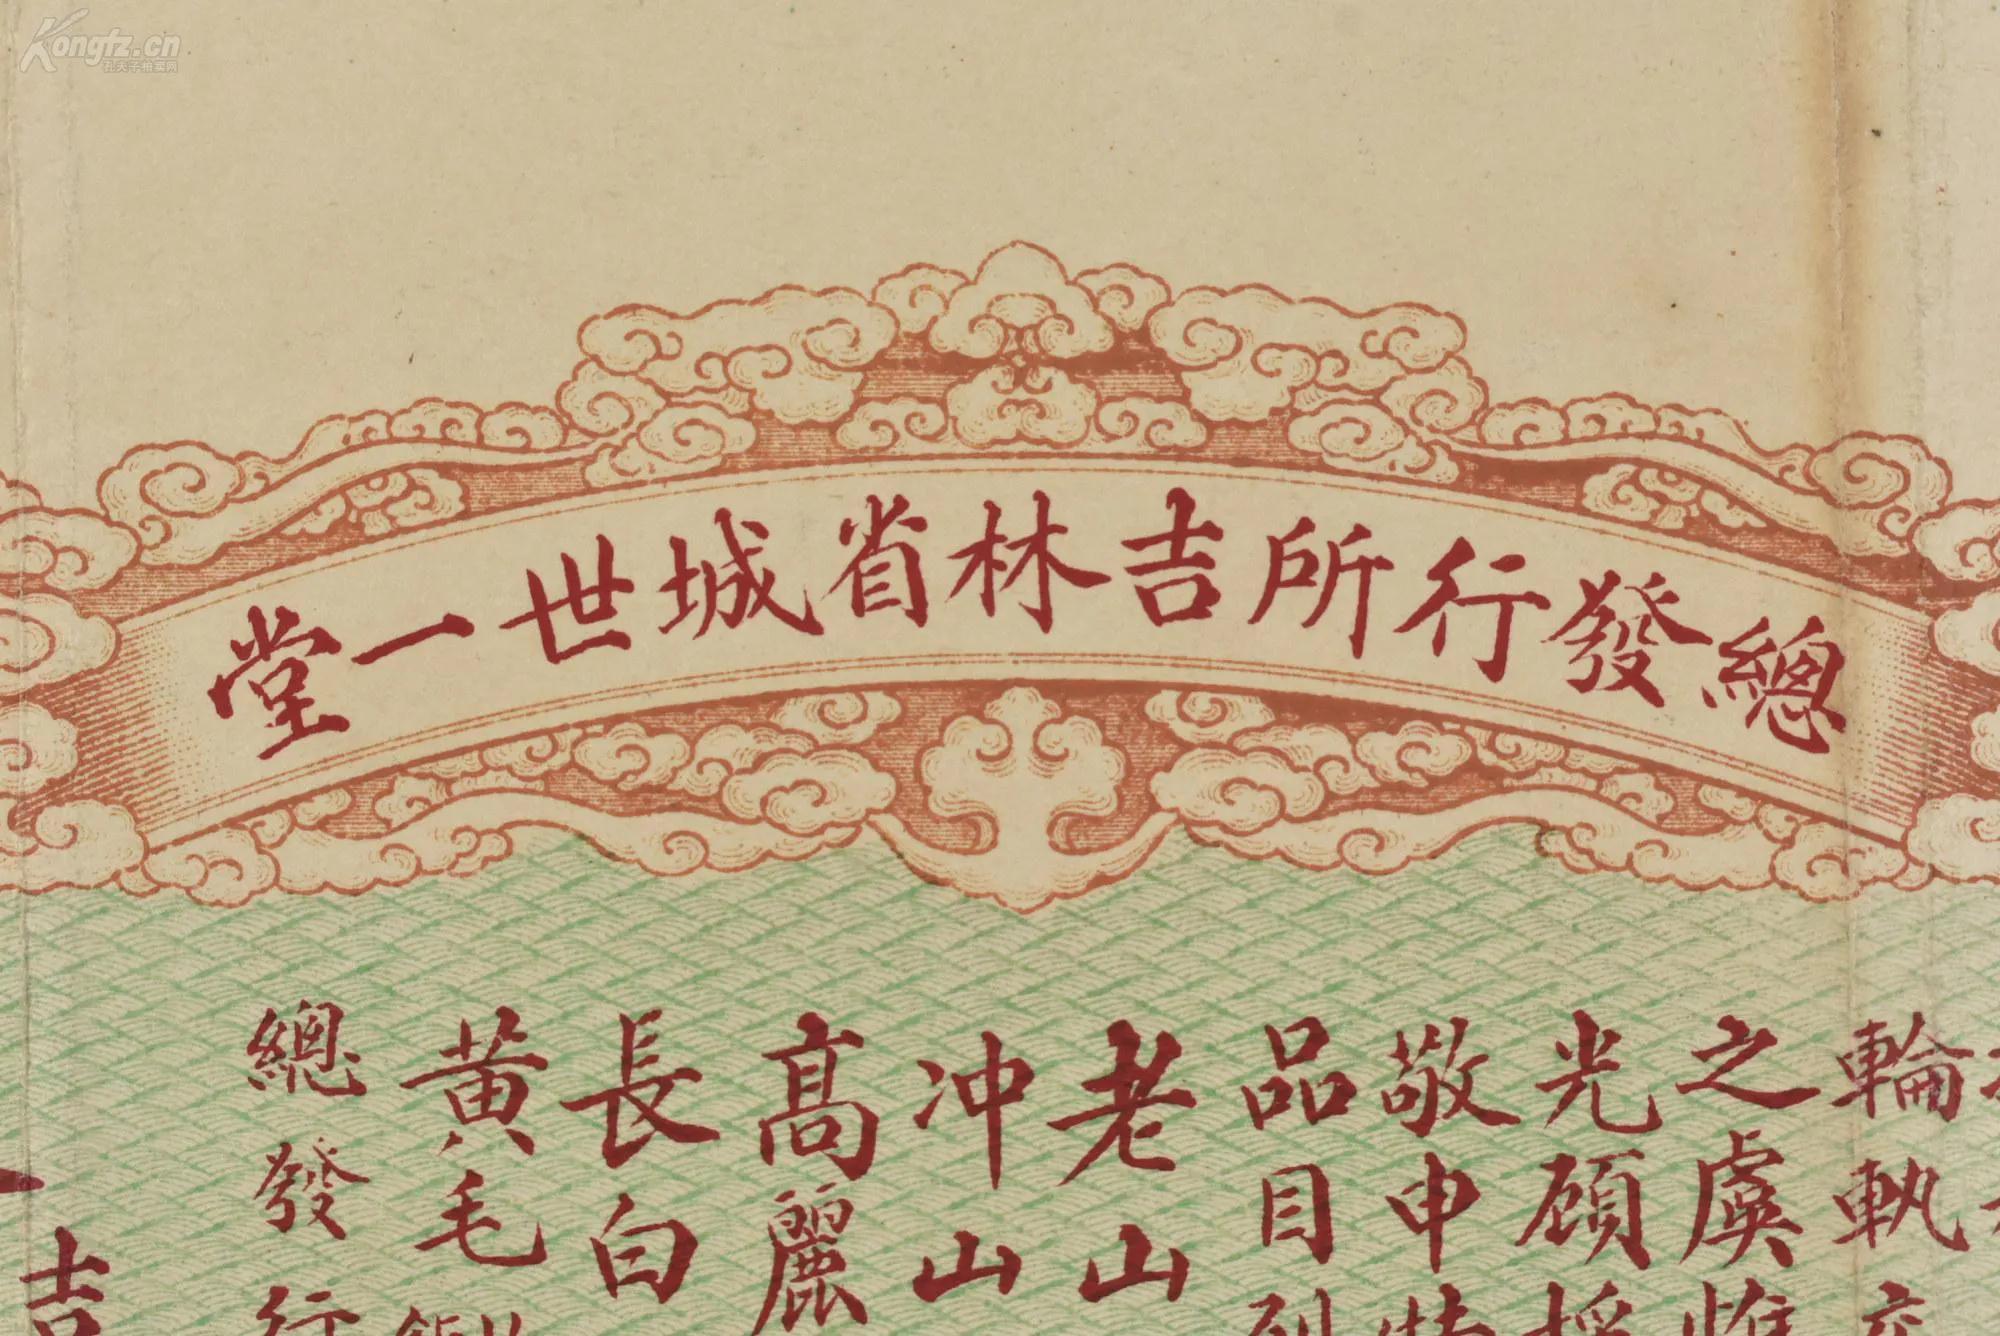 Kongfz.cn
孔夫子拍卖网
總發行所吉林省城世一堂
輪執
之虞惟
光顧
敬申特
品目列
老山
冲山
高麗
長白
黃毛
總發行
吉